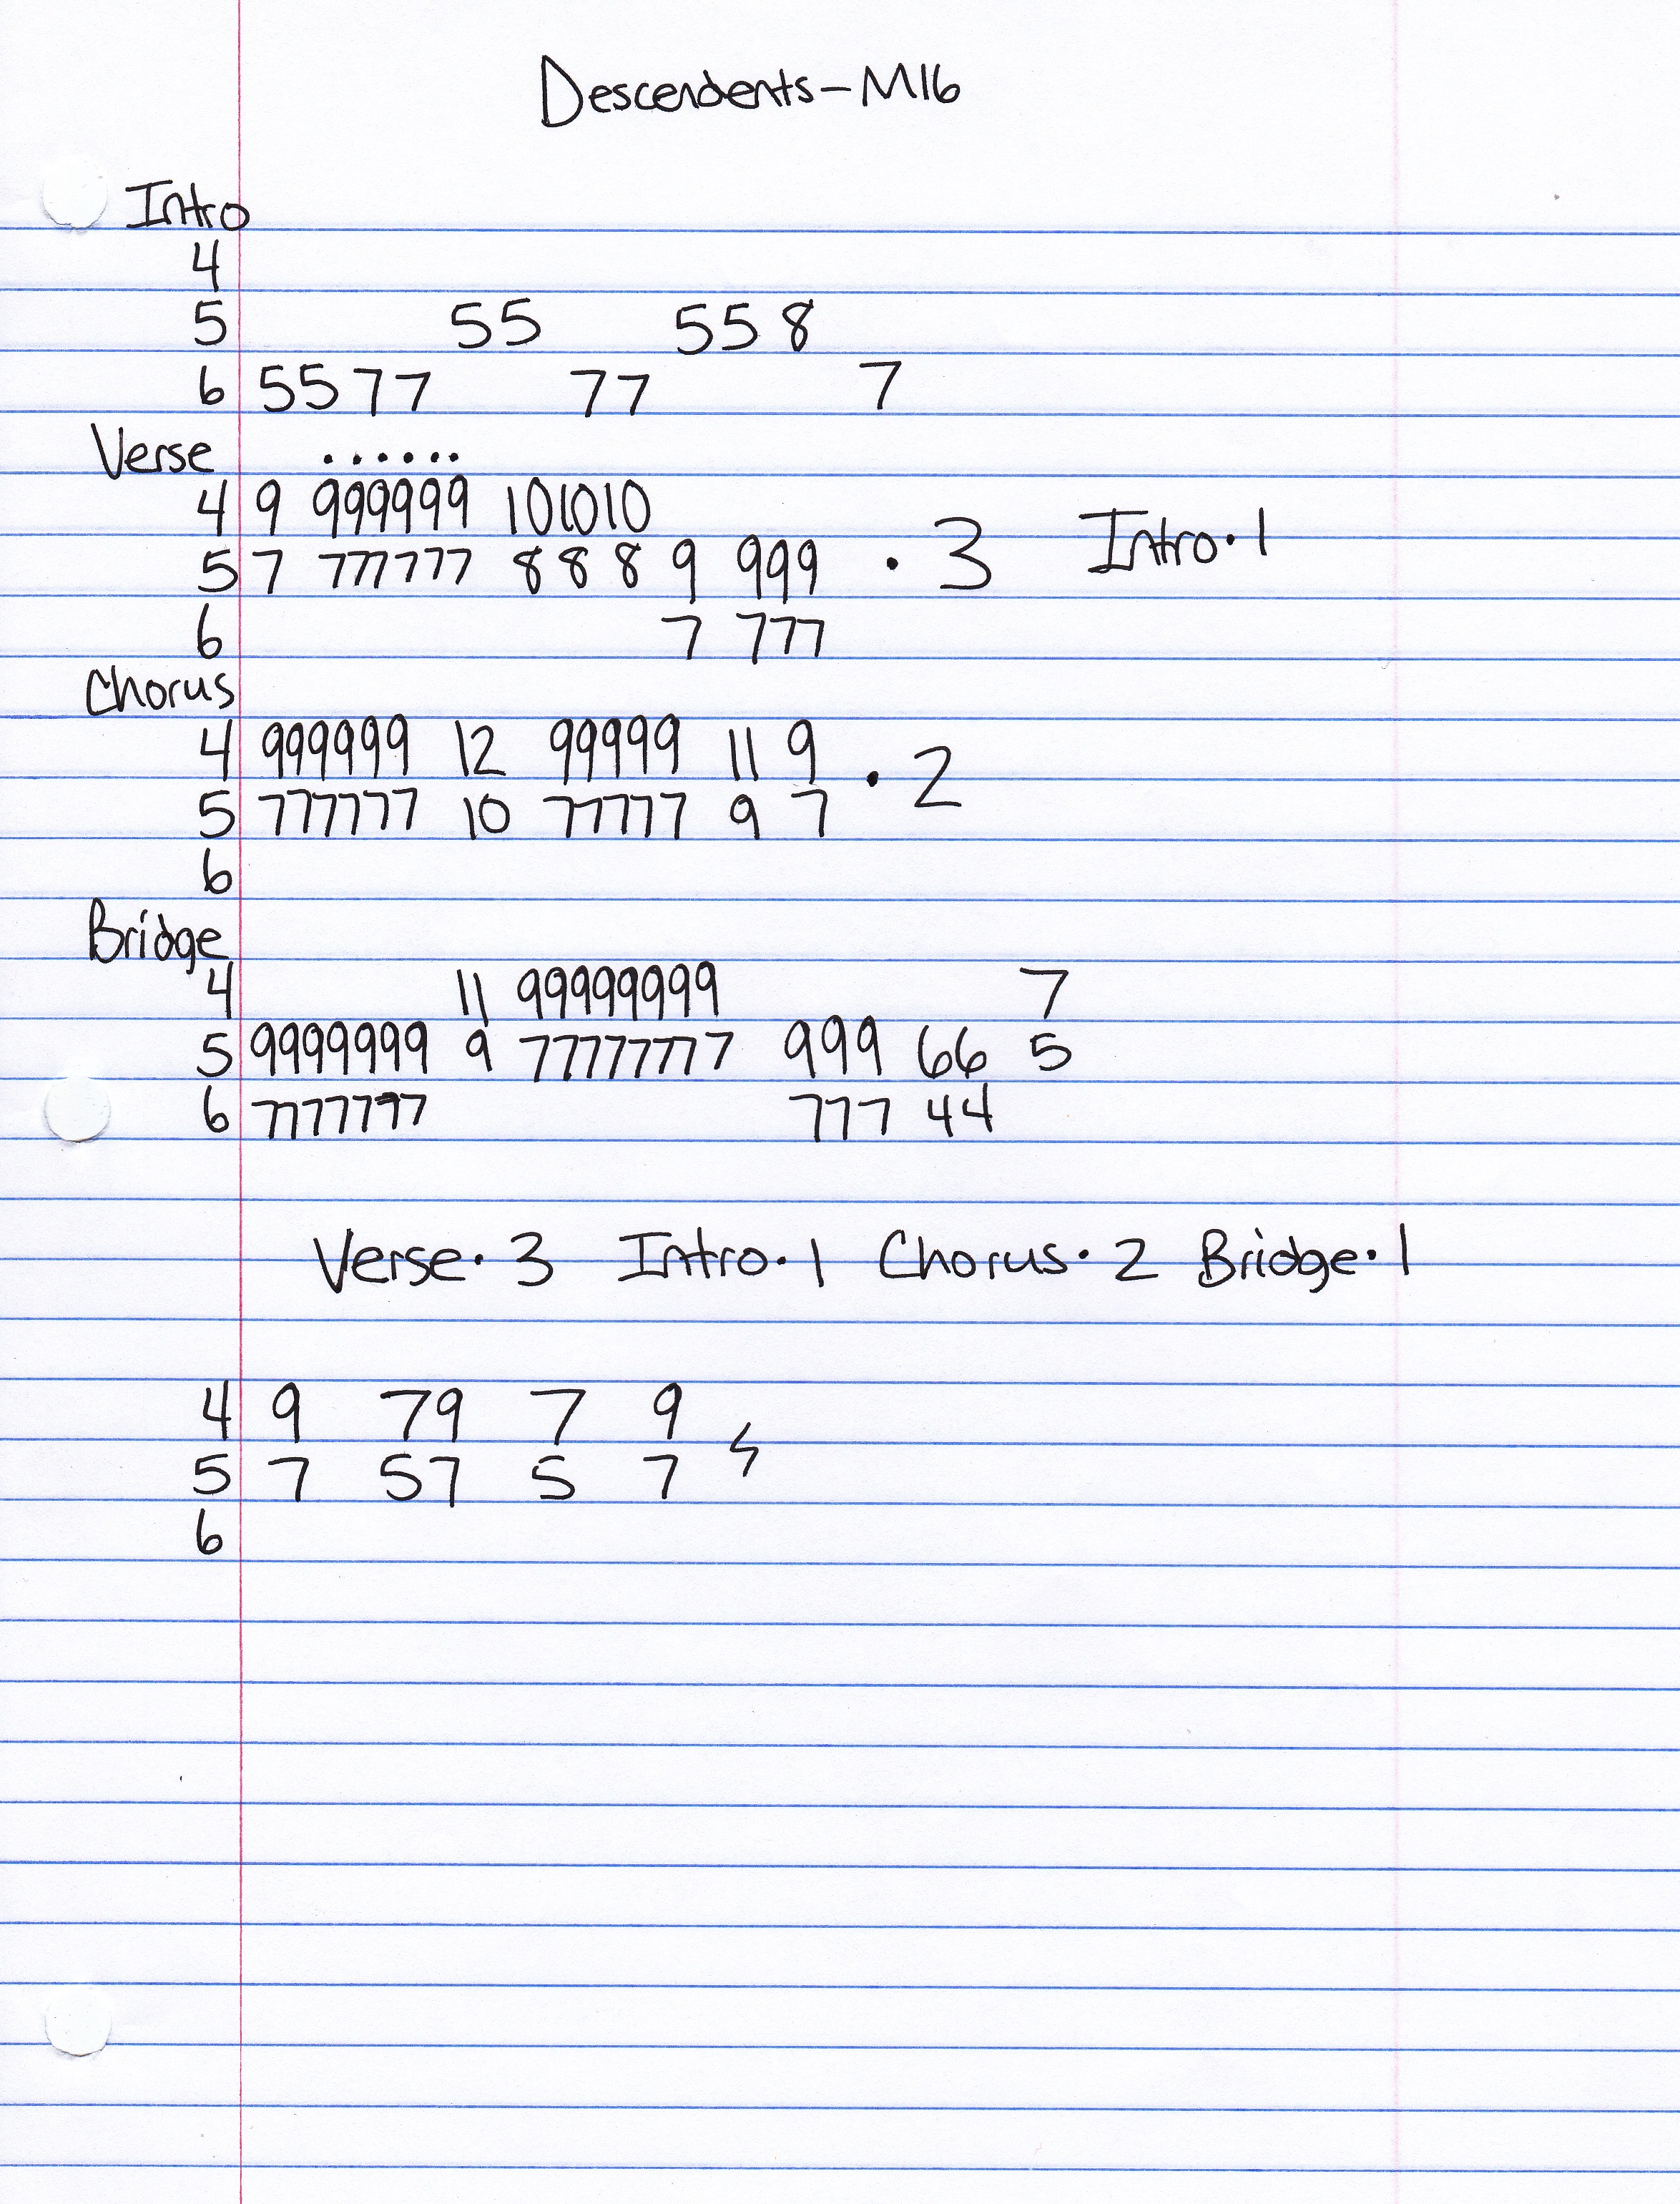 Descendents - M16
Intro
4
5 55 55 8
6 55 77 77 7
Verse ......
4 9 999999 101010
5 7 777777 8 8 8 9 999 · 3 Intro · 1
6 7 777
Chorus
4 999999 12 99999 11 9
5 777777 10 77777 9 7 · 2
6
Bridge
4 11 99999999 7
5 9999999 9 77777777 999 66 5
6 7777777 777 44
Verse · 3 Intro · 1 Chorus · 2 Bridge · 1
4 9 79 7 9
5 7 57 5 7
6